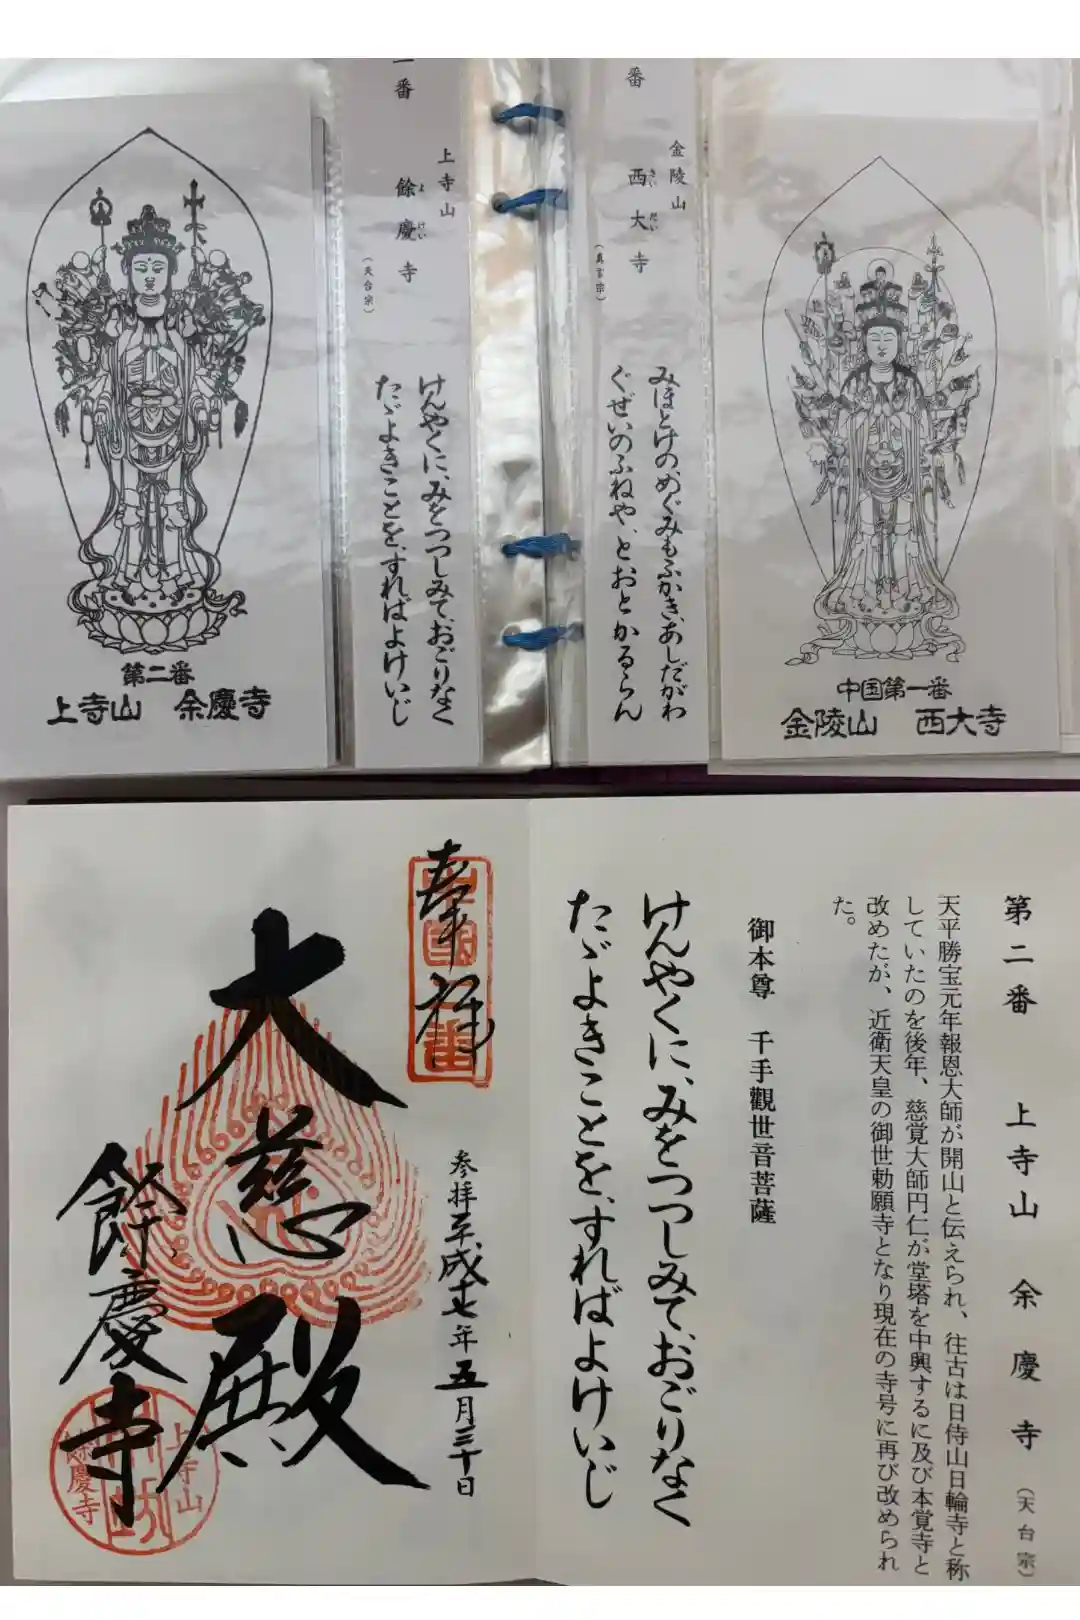 金陵山
番 西大寺
さい だい
（真言宗）
みほとけの、めぐみもふかき、あしだがわ
ぐぜいのふねや、とおとかるらん
中国第一番
金陵山 西大寺
上寺山
一番 餘慶寺
よ けい
（天台宗）
けんやくに、みをつつしみて、おごりなく
たゞよきことを、すればよけいじ
第二番
上寺山 余慶寺
第二番 上寺山 余慶寺（天台宗）
天平勝宝元年報恩大師が開山と伝えられ、往古は日待山日輪寺と称
していたのを後年、慈覚大師円仁が堂塔を中興するに及び本覚寺と
改めたが、近衛天皇の御世勅願寺となり現在の寺号に再び改められ
た。
御本尊 千手觀世音菩薩
けんやくに、みをつつしみて、おごりなく
たゞよきことを、すればよけいじ
奉拝
参拝平成十七年五月三十日
大慈殿
餘慶寺
上寺山
餘慶寺